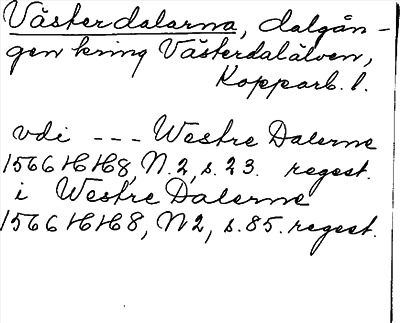 Västerdalarna, dalgån-
gen kring Västerdalälven,
Kopparb. l.
vdi --- Westre Dalerne
1566 HH8, N. 2, s. 23. regest.
i Westre Dalerne
1566 HH8, N2, s. 85. regest.